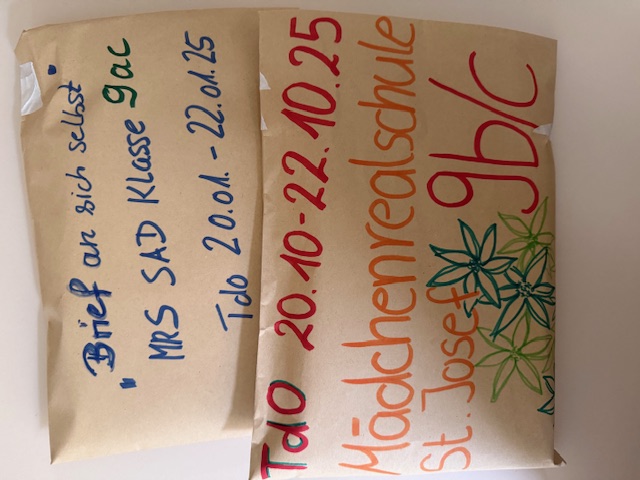 "Brief an sich selbst"
MRS SAD Klasse 9ac
TdO 20.01. - 22.01.25
TdO 20.10-22.10.25
Mädchenrealschule
St. Josef 9b/c